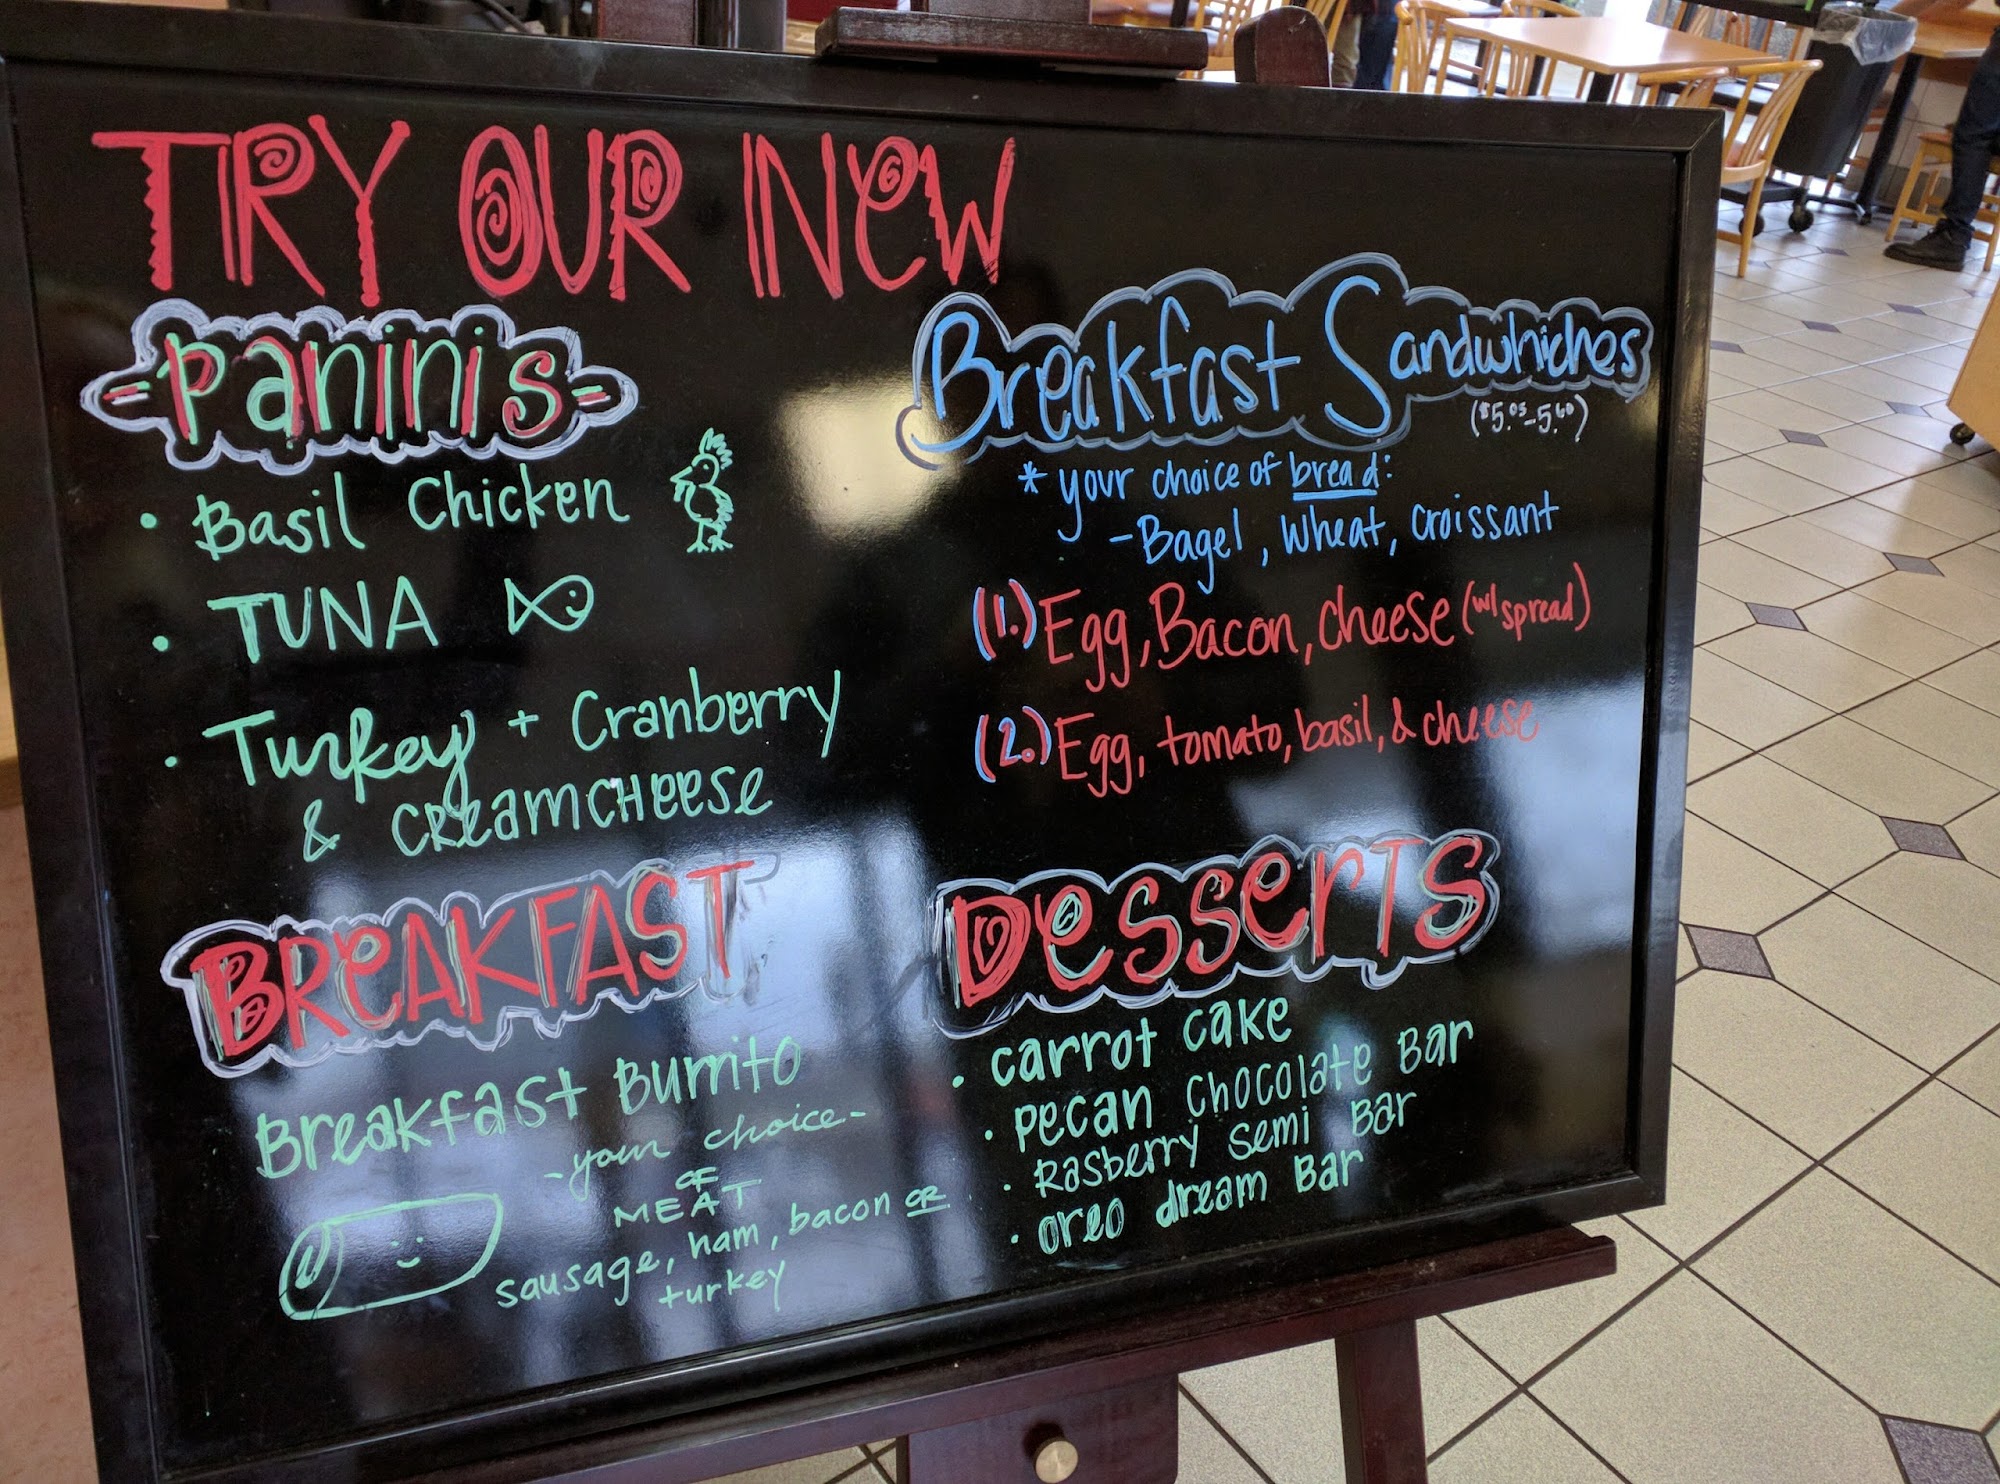 TRY OUR NEW
-Paninis-
• Basil Chicken
• TUNA
• Turkey + Cranberry
& CREAMCHEESE
BREAKFAST
Breakfast Burrito
-your choice-
OF
MEAT
sausage, ham, bacon OR
turkey
Breakfast Sandwhiches
($5.05-5.60)
* your choice of bread:
-Bagel, wheat, croissant
(1.) Egg, Bacon, cheese (w/ spread)
(2.) Egg, tomato, basil, & cheese
Desserts
• carrot cake
• Pecan chocolate Bar
• Rasberry semi Bar
• oreo dream Bar